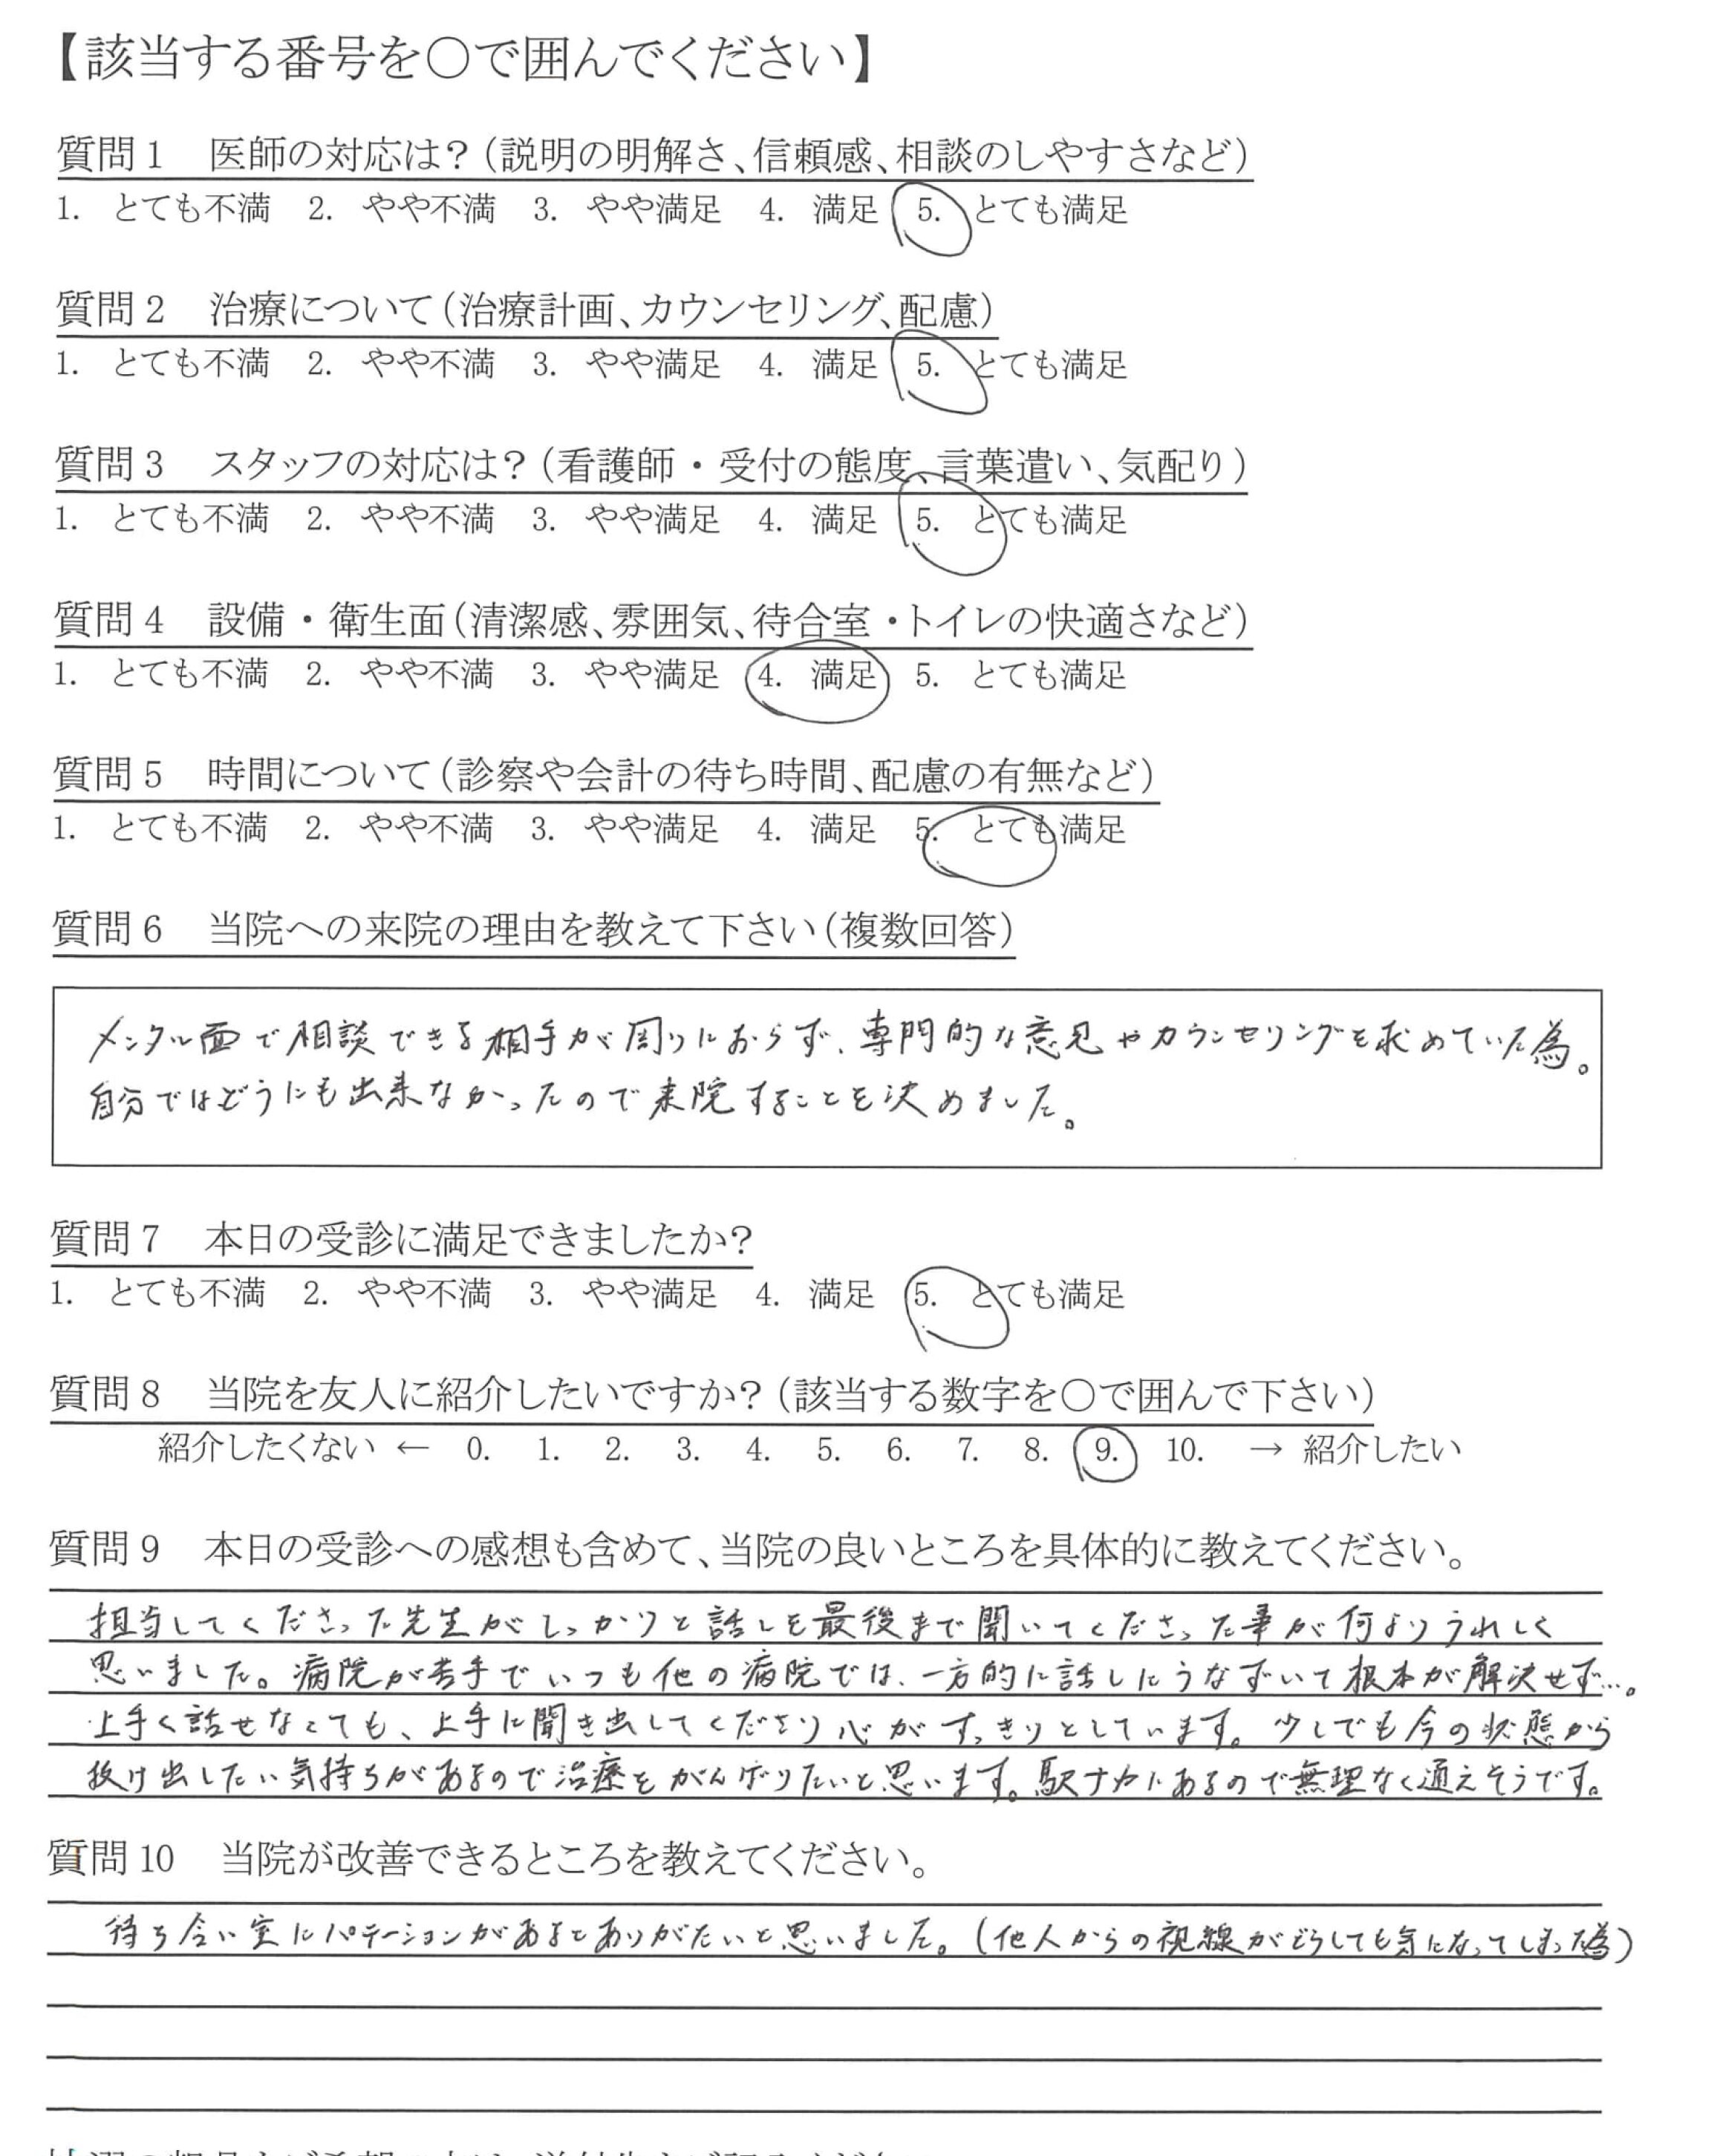 【該当する番号を○で囲んでください】
質問1 医師の対応は?(説明の明解さ、信頼感、相談のしやすさなど)
1. とても不満 2. やや不満 3. やや満足 4. 満足 5. とても満足
質問2 治療について(治療計画、カウンセリング、配慮)
1. とても不満 2. やや不満 3. やや満足 4. 満足 5. とても満足
質問3 スタッフの対応は?(看護師・受付の態度、言葉遣い、気配り)
1. とても不満 2. やや不満 3. やや満足 4. 満足 5. とても満足
質問4 設備・衛生面(清潔感、雰囲気、待合室・トイレの快適さなど)
1. とても不満 2. やや不満 3. やや満足 4. 満足 5. とても満足
質問5 時間について(診察や会計の待ち時間、配慮の有無など)
1. とても不満 2. やや不満 3. やや満足 4. 満足 5. とても満足
質問6 当院への来院の理由を教えて下さい(複数回答)
メンタル面で相談できる相手が周りにおらず、専門的な意見やカウンセリングを求めていた為。
自分ではどうにも出来なかったので来院することを決めました。
質問7 本日の受診に満足できましたか?
1. とても不満 2. やや不満 3. やや満足 4. 満足 5. とても満足
質問8 当院を友人に紹介したいですか?(該当する数字を○で囲んで下さい)
紹介したくない ← 0. 1. 2. 3. 4. 5. 6. 7. 8. 9. 10. → 紹介したい
質問9 本日の受診への感想も含めて、当院の良いところを具体的に教えてください。
担当してくださった先生がしっかりと話しを最後まで聞いてくださった事が何よりうれしく
思いました。病院が苦手でいつも他の病院では、一方的に話しにうなずいて根本が解決せず…。
上手く話せなくても、上手に聞き出してくださり心がすっきりとしています。少しでも今の状態から
抜け出したい気持ちがあるので治療をがんばりたいと思います。駅ナカにあるので無理なく通えそうです。
質問10 当院が改善できるところを教えてください。
待ち合い室にパテーションがあるとありがたいと思いました。(他人からの視線がどうしても気になってしまった為)